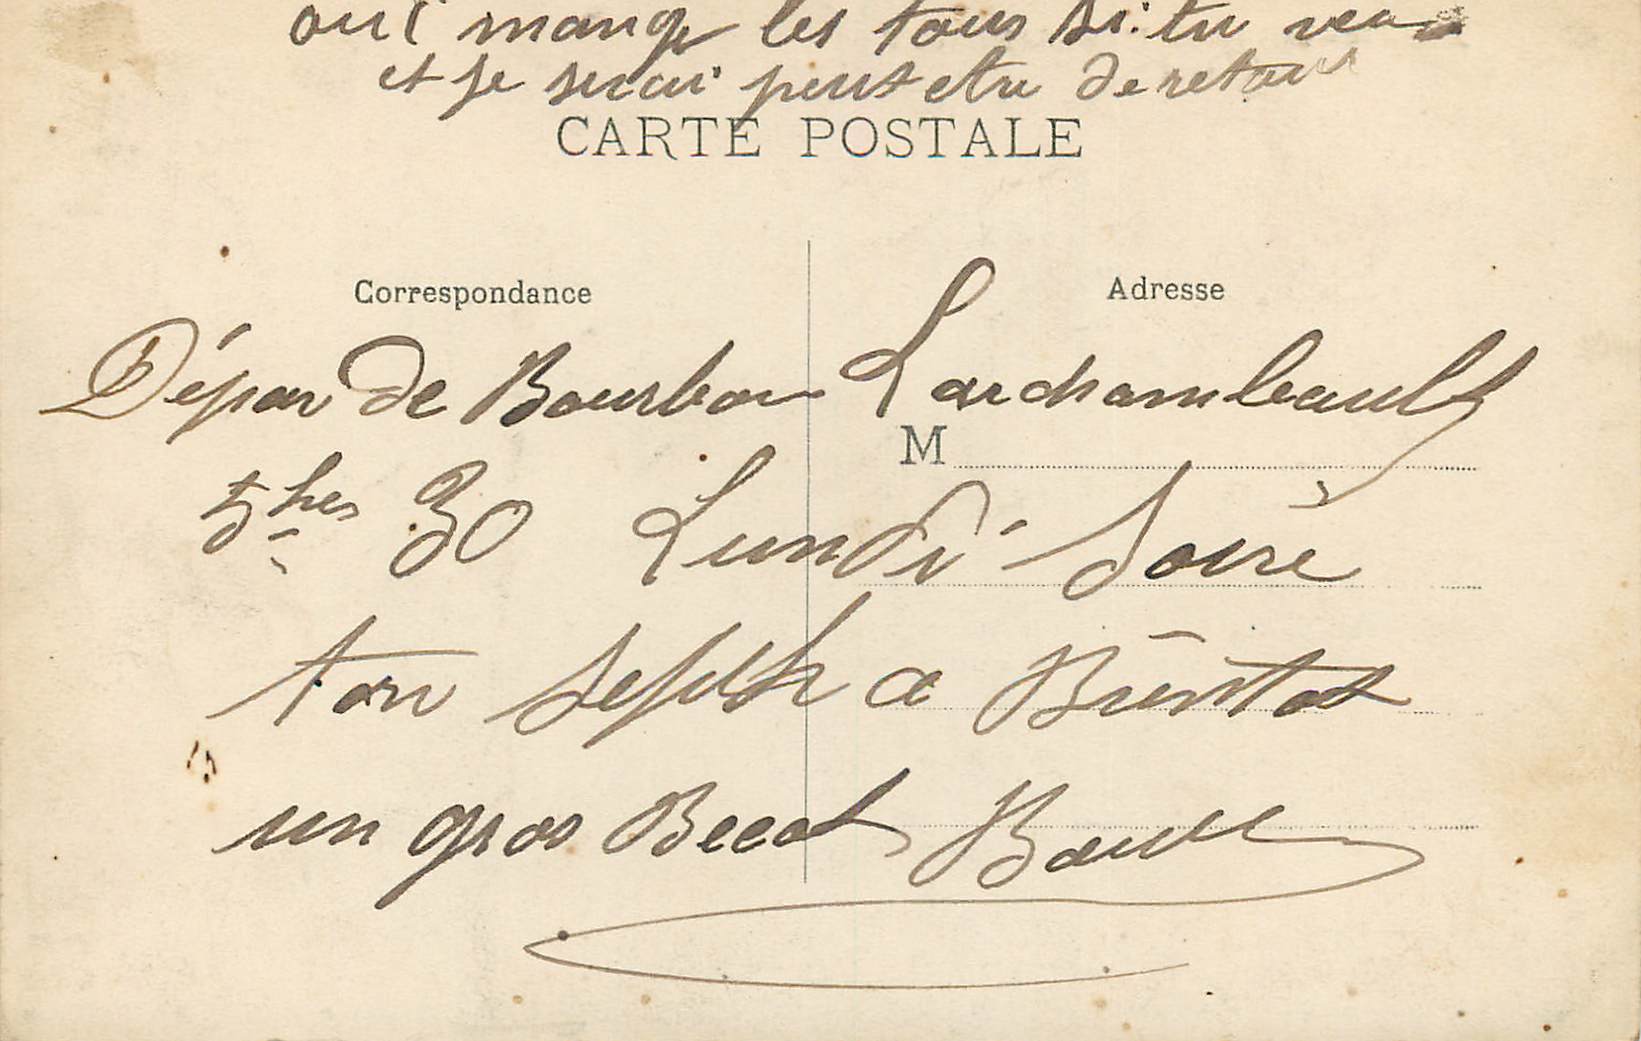 oui mange les tous si tu veu
et je serai peut etre de retour
CARTE POSTALE
Correspondance
Adresse
Dépar de Bourbon Larchambault
M
5 hes 30 Lundi Soire
ton a
un gros